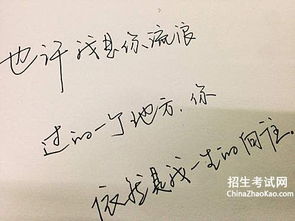 也许我是你流浪
过的一个地方.你
依然是我一生的向往.
招生考试网
ChinaZhaoKao.com